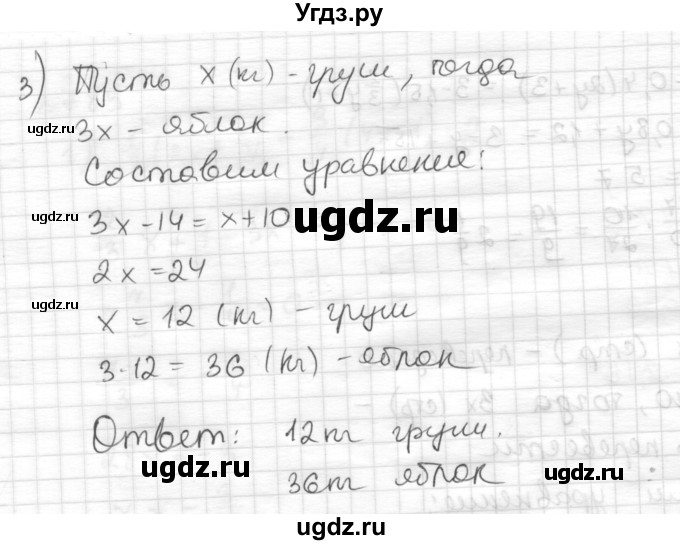 Угдз.ру
3) Пусть x (кг) - груш, тогда
ugdz.ru
3x - яблок.
Составим уравнение:
ugdz.ru
3x - 14 = x + 10
ugdz.ru
2x = 24
ugdz.ru
x = 12 (кг) - груш
3 · 12 = 36 (кг) - яблок
Ответ: 12кг груш.
ugdz.ru
36кг яблок
ugdz.ru
ugdz.ru